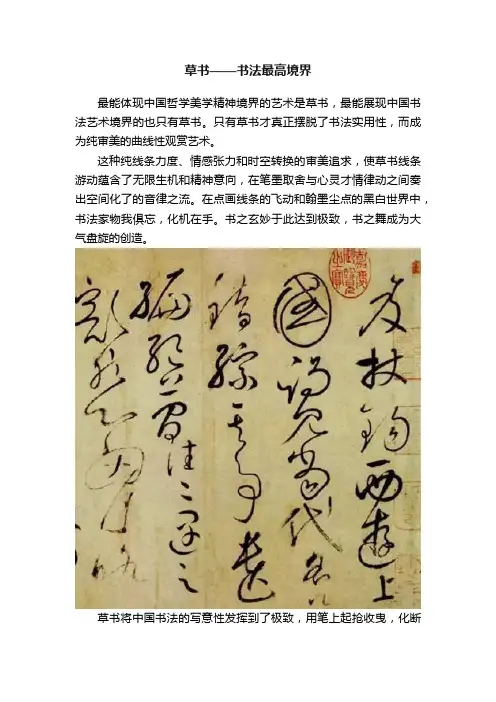 草书——书法最高境界
最能体现中国哲学美学精神境界的艺术是草书，最能展现中国书
法艺术境界的也只有草书。只有草书才真正摆脱了书法实用性，而成
为纯审美的曲线性观赏艺术。
这种纯线条力度、情感张力和时空转换的审美追求，使草书线条
游动蕴含了无限生机和精神意向，在笔墨取舍与心灵才情律动之间奏
出空间化了的音律之流。在点画线条的飞动和翰墨尘点的黑白世界中，
书法家物我俱忘，化机在手。书之玄妙于此达到极致，书之舞成为大
气盘旋的创造。
笈杖錫西遊上
國謁見當代名
錯綜其事遺
編絕簡往〻遇之
豁然心胸略
草书将中国书法的写意性发挥到了极致，用笔上起抢收曳，化断